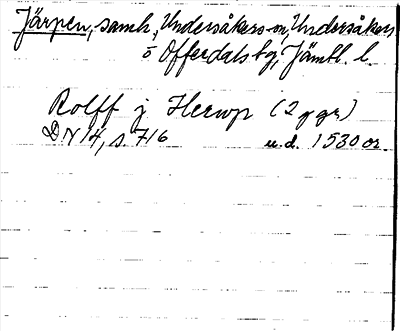 Järpen, samh., Undersåkers sn, Undersåkers
o Offerdals tg, Jämtl. l.
Rolff j Herwp (2 ggr)
DN 14, s. 716 u.d. 1530 or.